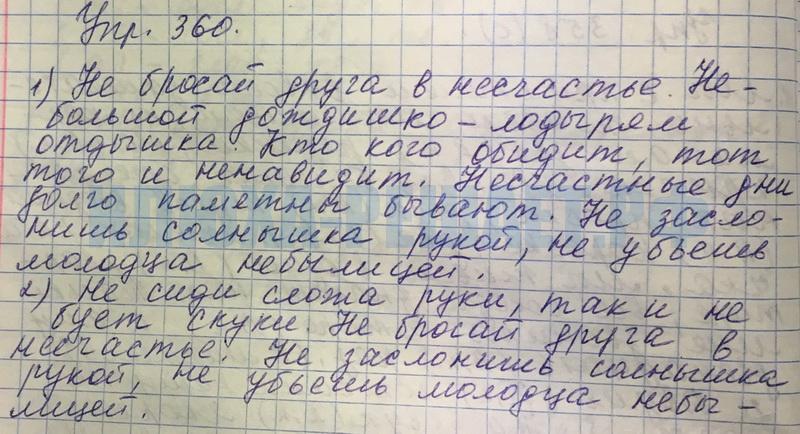 Упр. 360.
1) Не бросай друга в несчастье. Не-
большой дождишко – лодырям
отдышка. Кто кого обидит, тот
того и ненавидит. Несчастные дни
долго памятны бывают. Не засло-
нишь солнышка рукой, не убьешь
молодца небылицей.
2) Не сиди сложа руки, так и не
бует скуки. Не бросай друга в
несчастье. Не заслонишь солнышка
рукой, не убьешь молодца небы-
лицей.